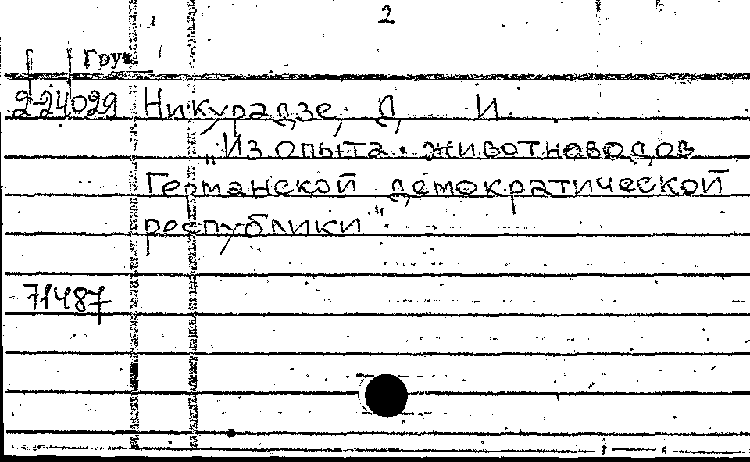 2
Груз
2-24029 Никурадзе, Д. И.
„Из опыта животноводов
Германской демократической
республики"
71487